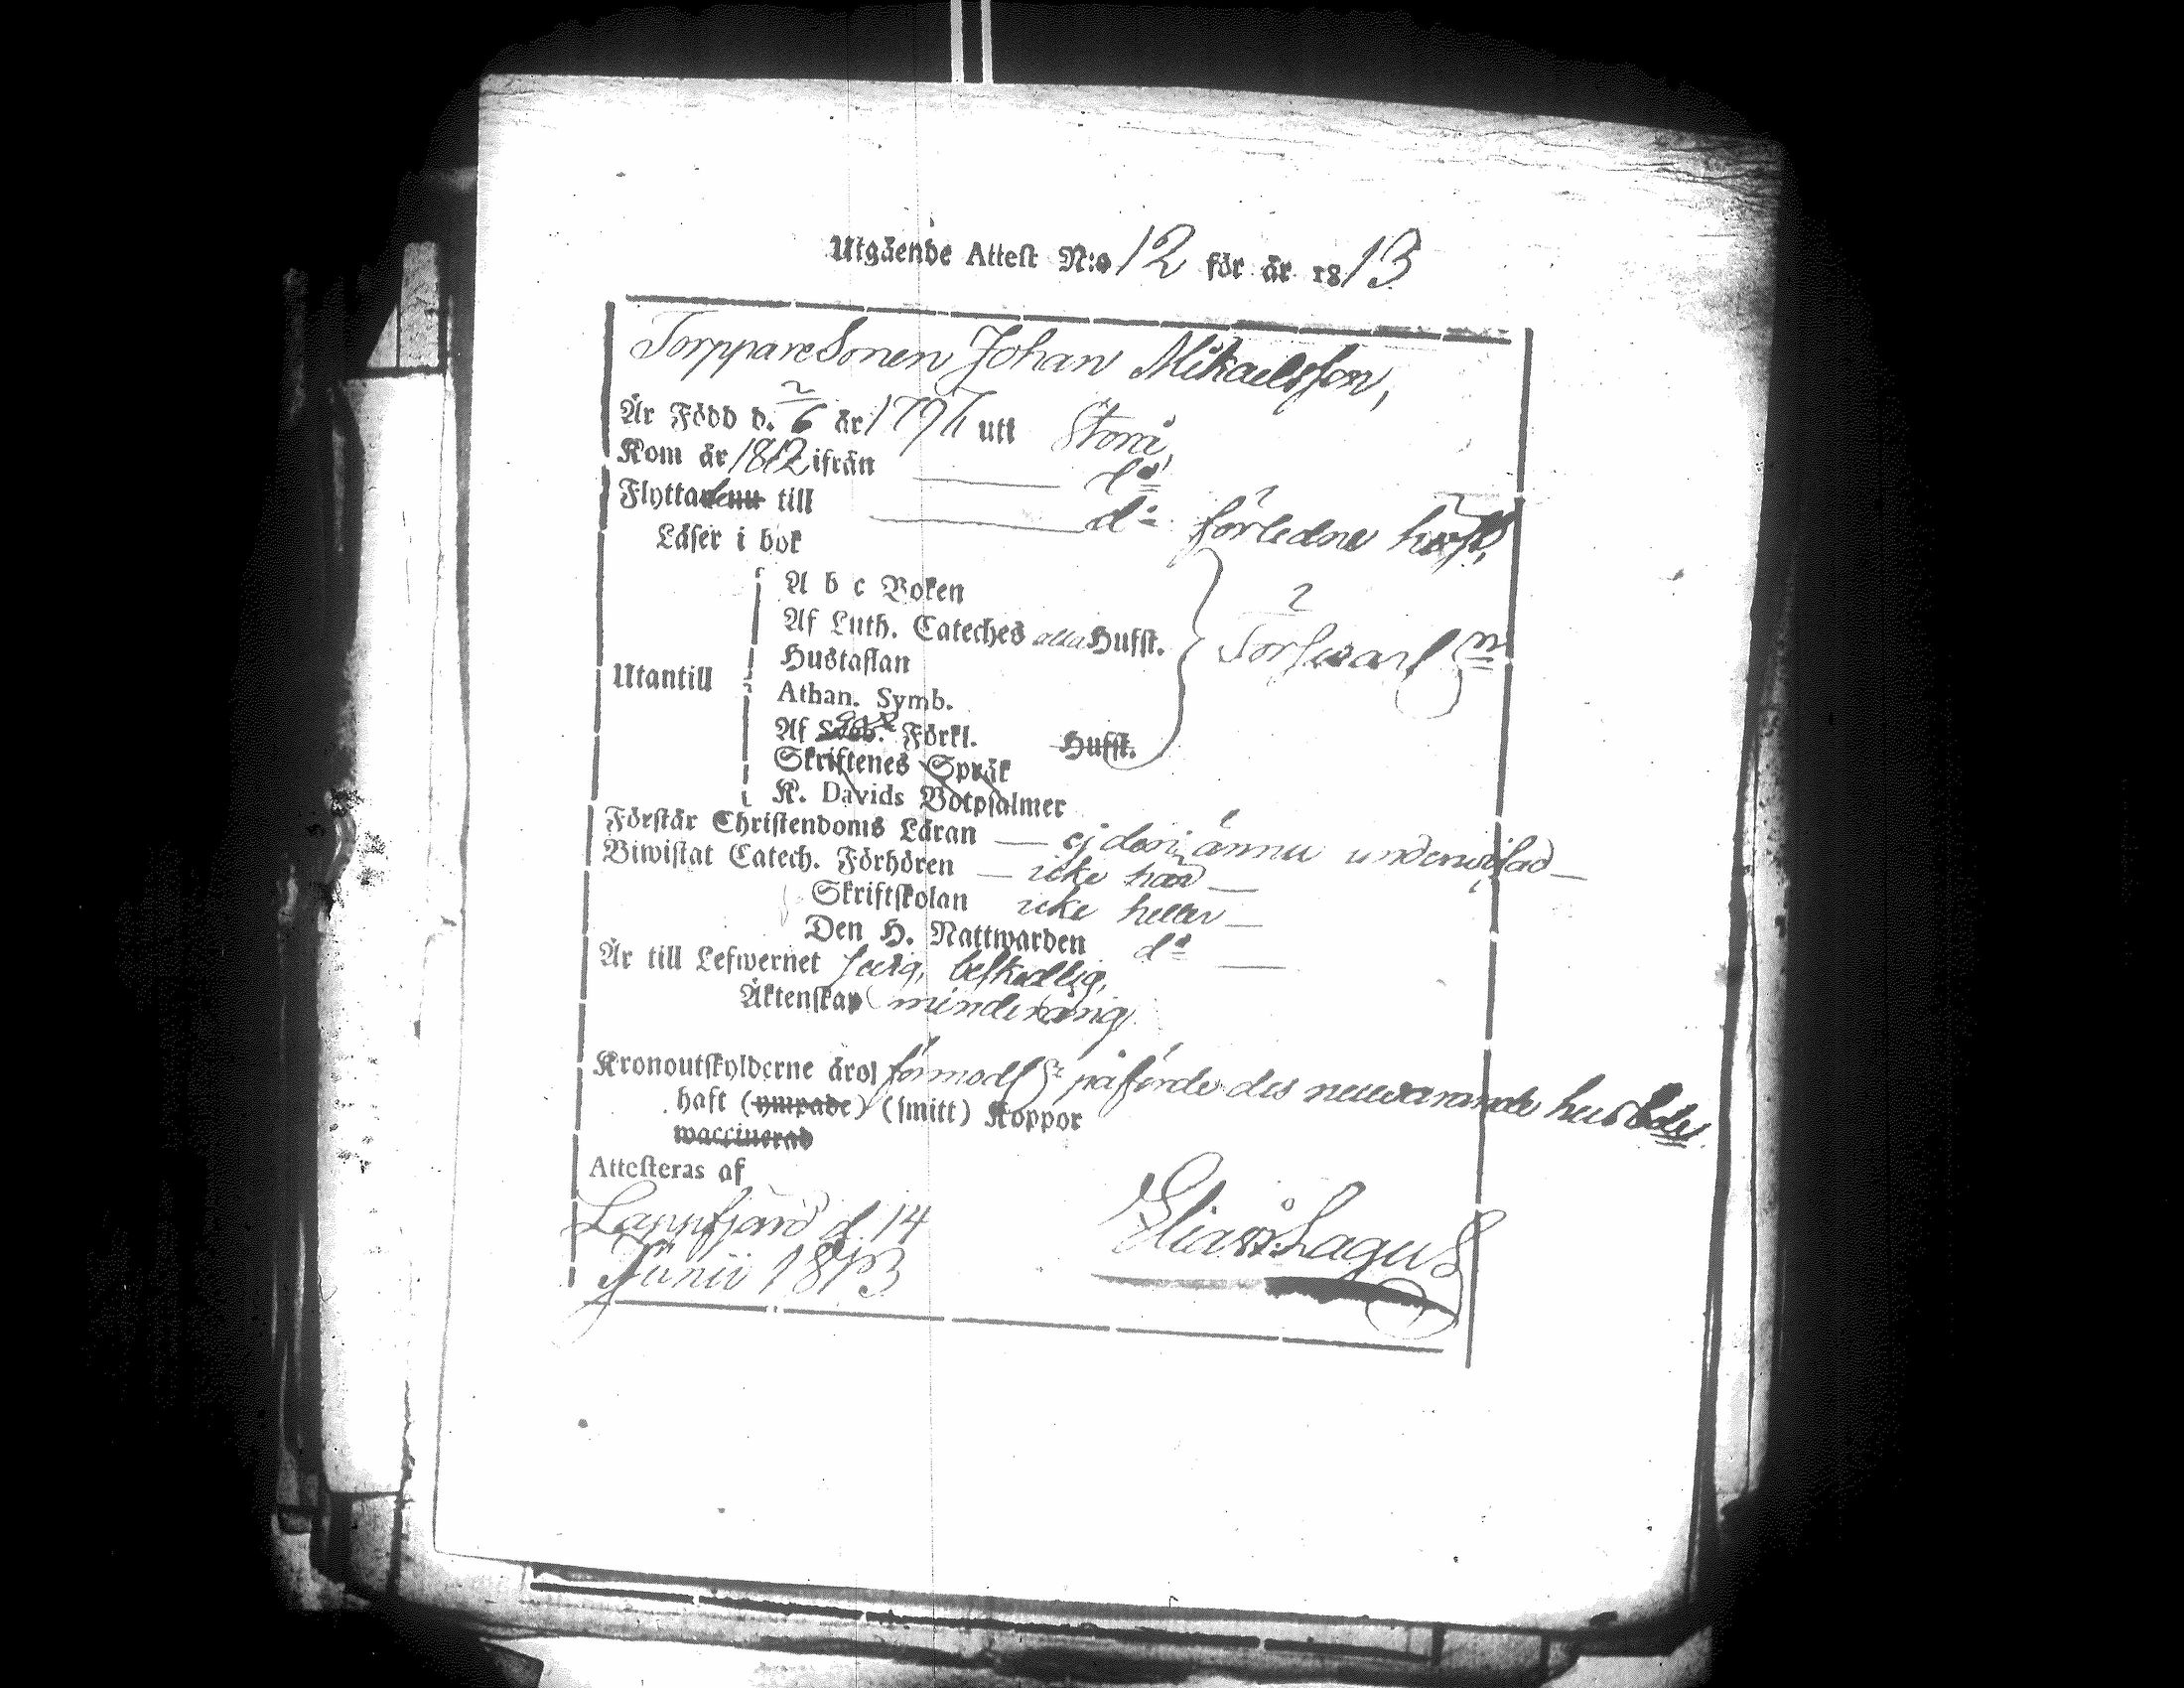 Utgående Attest N:o 12 för år 1813
Torppare Sonen Johan Mikaelsson,
Är Född d. 2/6 år 1797 utt Storå,
Kom år 1812 ifrån — d:o
Flyttade till — d:o förledne höst,
Läser i bok
A b c Boken
Af Luth. Cateches alla Hufst.
Hustaflan
Utantill
Athan. Symb.
Af Förkl. Hufst.
Skriftenes Språk
K. Davids Botpsalmer
Förstår Christendoms Läran — ej deri ännu underwisad —
Biwistat Catech. Förhören — icke har —
Skriftskolan icke heller —
Den H. Nattwarden d:o —
Är till Lefwernet beskedlig,
Äktenskap minderårig
Kronoutskylderne äro påförde des nuvarande
haft (ympade) (smitt) Koppor
waccinerad
Attesteras af
Lappfjärd d. 14 Elias Lagus
Junii 1813